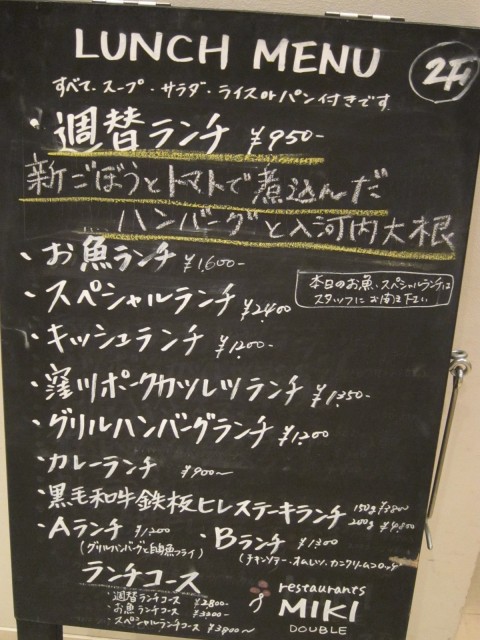 LUNCH MENU
2F
すべて、スープ・サラダ・ライスorパン付きです
・週替ランチ ¥950-
新ごぼうとトマトで煮込んだ
ハンバーグと入河内大根
・お魚ランチ ¥1,600-
本日のお魚、スペシャルランチは
スタッフにお聞き下さい
・スペシャルランチ ¥2,400
・キッシュランチ ¥1,200-
・窪川ポークカツレツランチ ¥1,350-
・グリルハンバーグランチ ¥1,200
・カレーランチ ¥900〜
・黒毛和牛鉄板ヒレステーキランチ 150g ¥3,800
200g ¥4,800
・Aランチ ¥1,200
(グリルハンバーグと白身魚フライ)
・Bランチ ¥1,300
(チキンソテー・オムレツ・カニクリームコロッケ)
ランチコース
・週替ランチコース ¥2,800-
・お魚ランチコース ¥3,200-
・スペシャルランチコース ¥3,900〜
restaurants
MIKI
DOUBLE